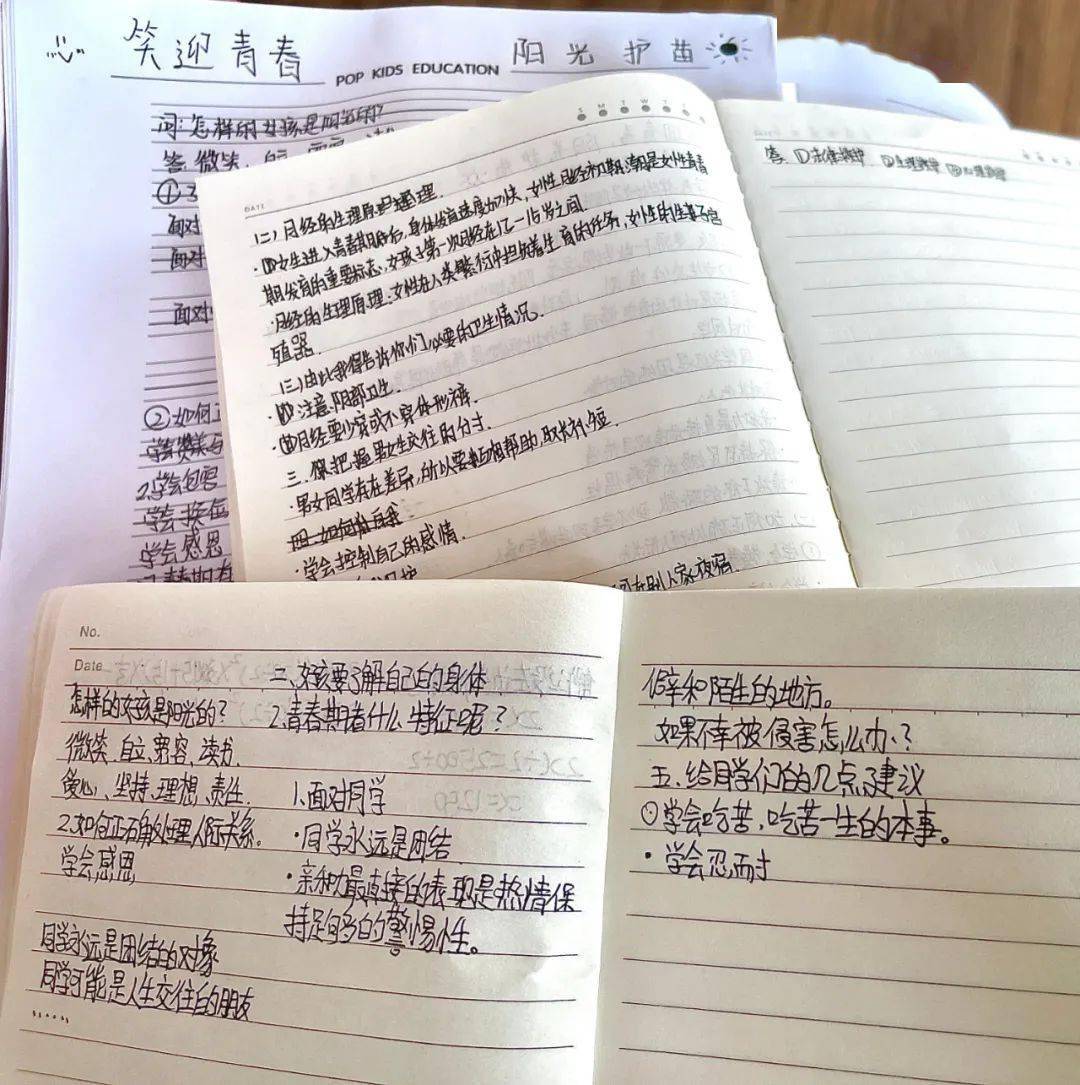 笑迎青春 POP KIDS EDUCATION 阳光护苗
问:怎样的女孩是阳光的?
答:微笑、
①
面对
面对
面对
②如何正
学会赞美与
2.学会包容
学会换位
学会感恩
S M T W T F
DATE
(二)月经的生理原理
·①女生进入青春期后,身体发育速度加快,女性月经初期潮是女性青春
期发育的重要标志,女孩子第一次月经在12-15岁之间.
·月经的生理原理:女性在人类繁衍中担负着生育的任务,女性的生殖器官
殖器.
(三)由此我得告诉你们,必要的卫生情况.
·①注意阴部卫生.
·②月经要少穿或不穿体形裤.
三.保把握男女生交往的分寸.
·男女同学存在差异,所以要相互帮助,取长补短.
四.如何自我
·学会控制自己的感情.
可在别人家夜宿.
答:①法律
No.
Date
怎样的女孩是阳光的?
微笑、自立、宽容、读书、
爱心、坚持、理想、责任.
2.如何正确处理人际关系。
学会,感恩
同学永远是团结的对象
同学可能是人生交往的朋友
……
二、女孩要了解自己的身体
2.青春期有什么特征呢?
1.面对同学
·同学永远是团结
·亲和力最直接的表现是热情保
持足够多的警惕性。
僻和陌生的地方。
如果不幸被侵害怎么办?
五.给同学们的几点建议
①学会吃苦,吃苦一生的本事。
·学会忍耐